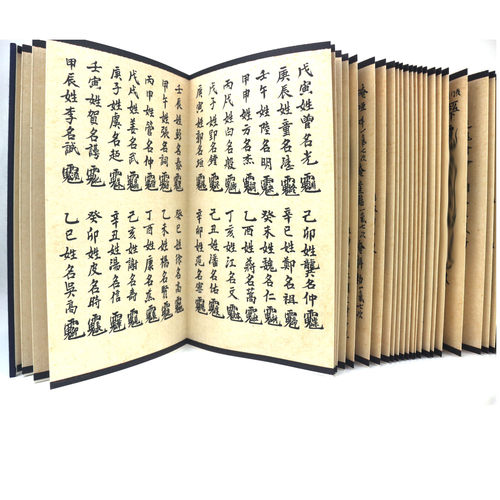 戊寅姓曾名光 己卯姓龔名仲
庚辰姓重名陸 辛巳姓鄭名祖
壬午姓陸名明 癸未姓魏名仁
甲申姓方名杰 乙酉姓蔣名
丙戌姓白名敏 丁亥姓江名文
戊子姓名 己丑姓潘名佑
庚寅姓鄔名桓 辛卯姓范名寧
壬辰姓彭名泰 癸巳姓徐名
甲午姓張名詞 乙未姓楊名賢
丙申姓管名仲 丁酉姓康名
戊戌姓姜名武 己亥姓謝名壽
庚子姓虞名起 辛丑姓湯名信
壬寅姓賀名諤 癸卯姓皮名時
甲辰姓李名誠 乙巳姓吳名高